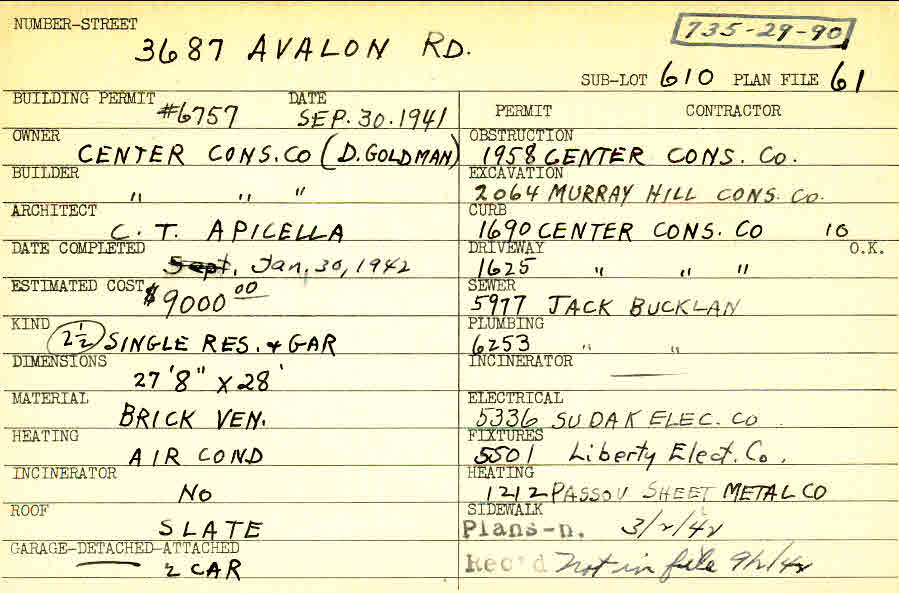 NUMBER-STREET
3687 AVALON RD.
735-29-90
SUB-LOT 610 PLAN FILE 61
BUILDING PERMIT DATE
#6757 SEP. 30. 1941
OWNER
CENTER CONS. CO (D. GOLDMAN)
BUILDER
" " "
ARCHITECT
C. T. APICELLA
DATE COMPLETED
Sept. Jan. 30, 1942
ESTIMATED COST
$9000 00
KIND
2½ SINGLE RES. + GAR
DIMENSIONS
27'8" X 28'
MATERIAL
BRICK VEN.
HEATING
AIR COND
INCINERATOR
NO
ROOF
SLATE
GARAGE-DETACHED-ATTACHED
2 CAR
PERMIT CONTRACTOR
OBSTRUCTION
1958 CENTER CONS. CO.
EXCAVATION
2064 MURRAY HILL CONS. CO.
CURB
1690 CENTER CONS. CO 10
DRIVEWAY O.K.
1625 " " "
SEWER
5977 JACK BUCKLAN
PLUMBING
6253 " "
INCINERATOR
ELECTRICAL
5336 SUDAK ELEC. CO
FIXTURES
5501 Liberty Elect. Co.
HEATING
1212 PASSOV SHEET METAL CO
SIDEWALK
Plans-n. 3/2/42
Rec'd Not in file